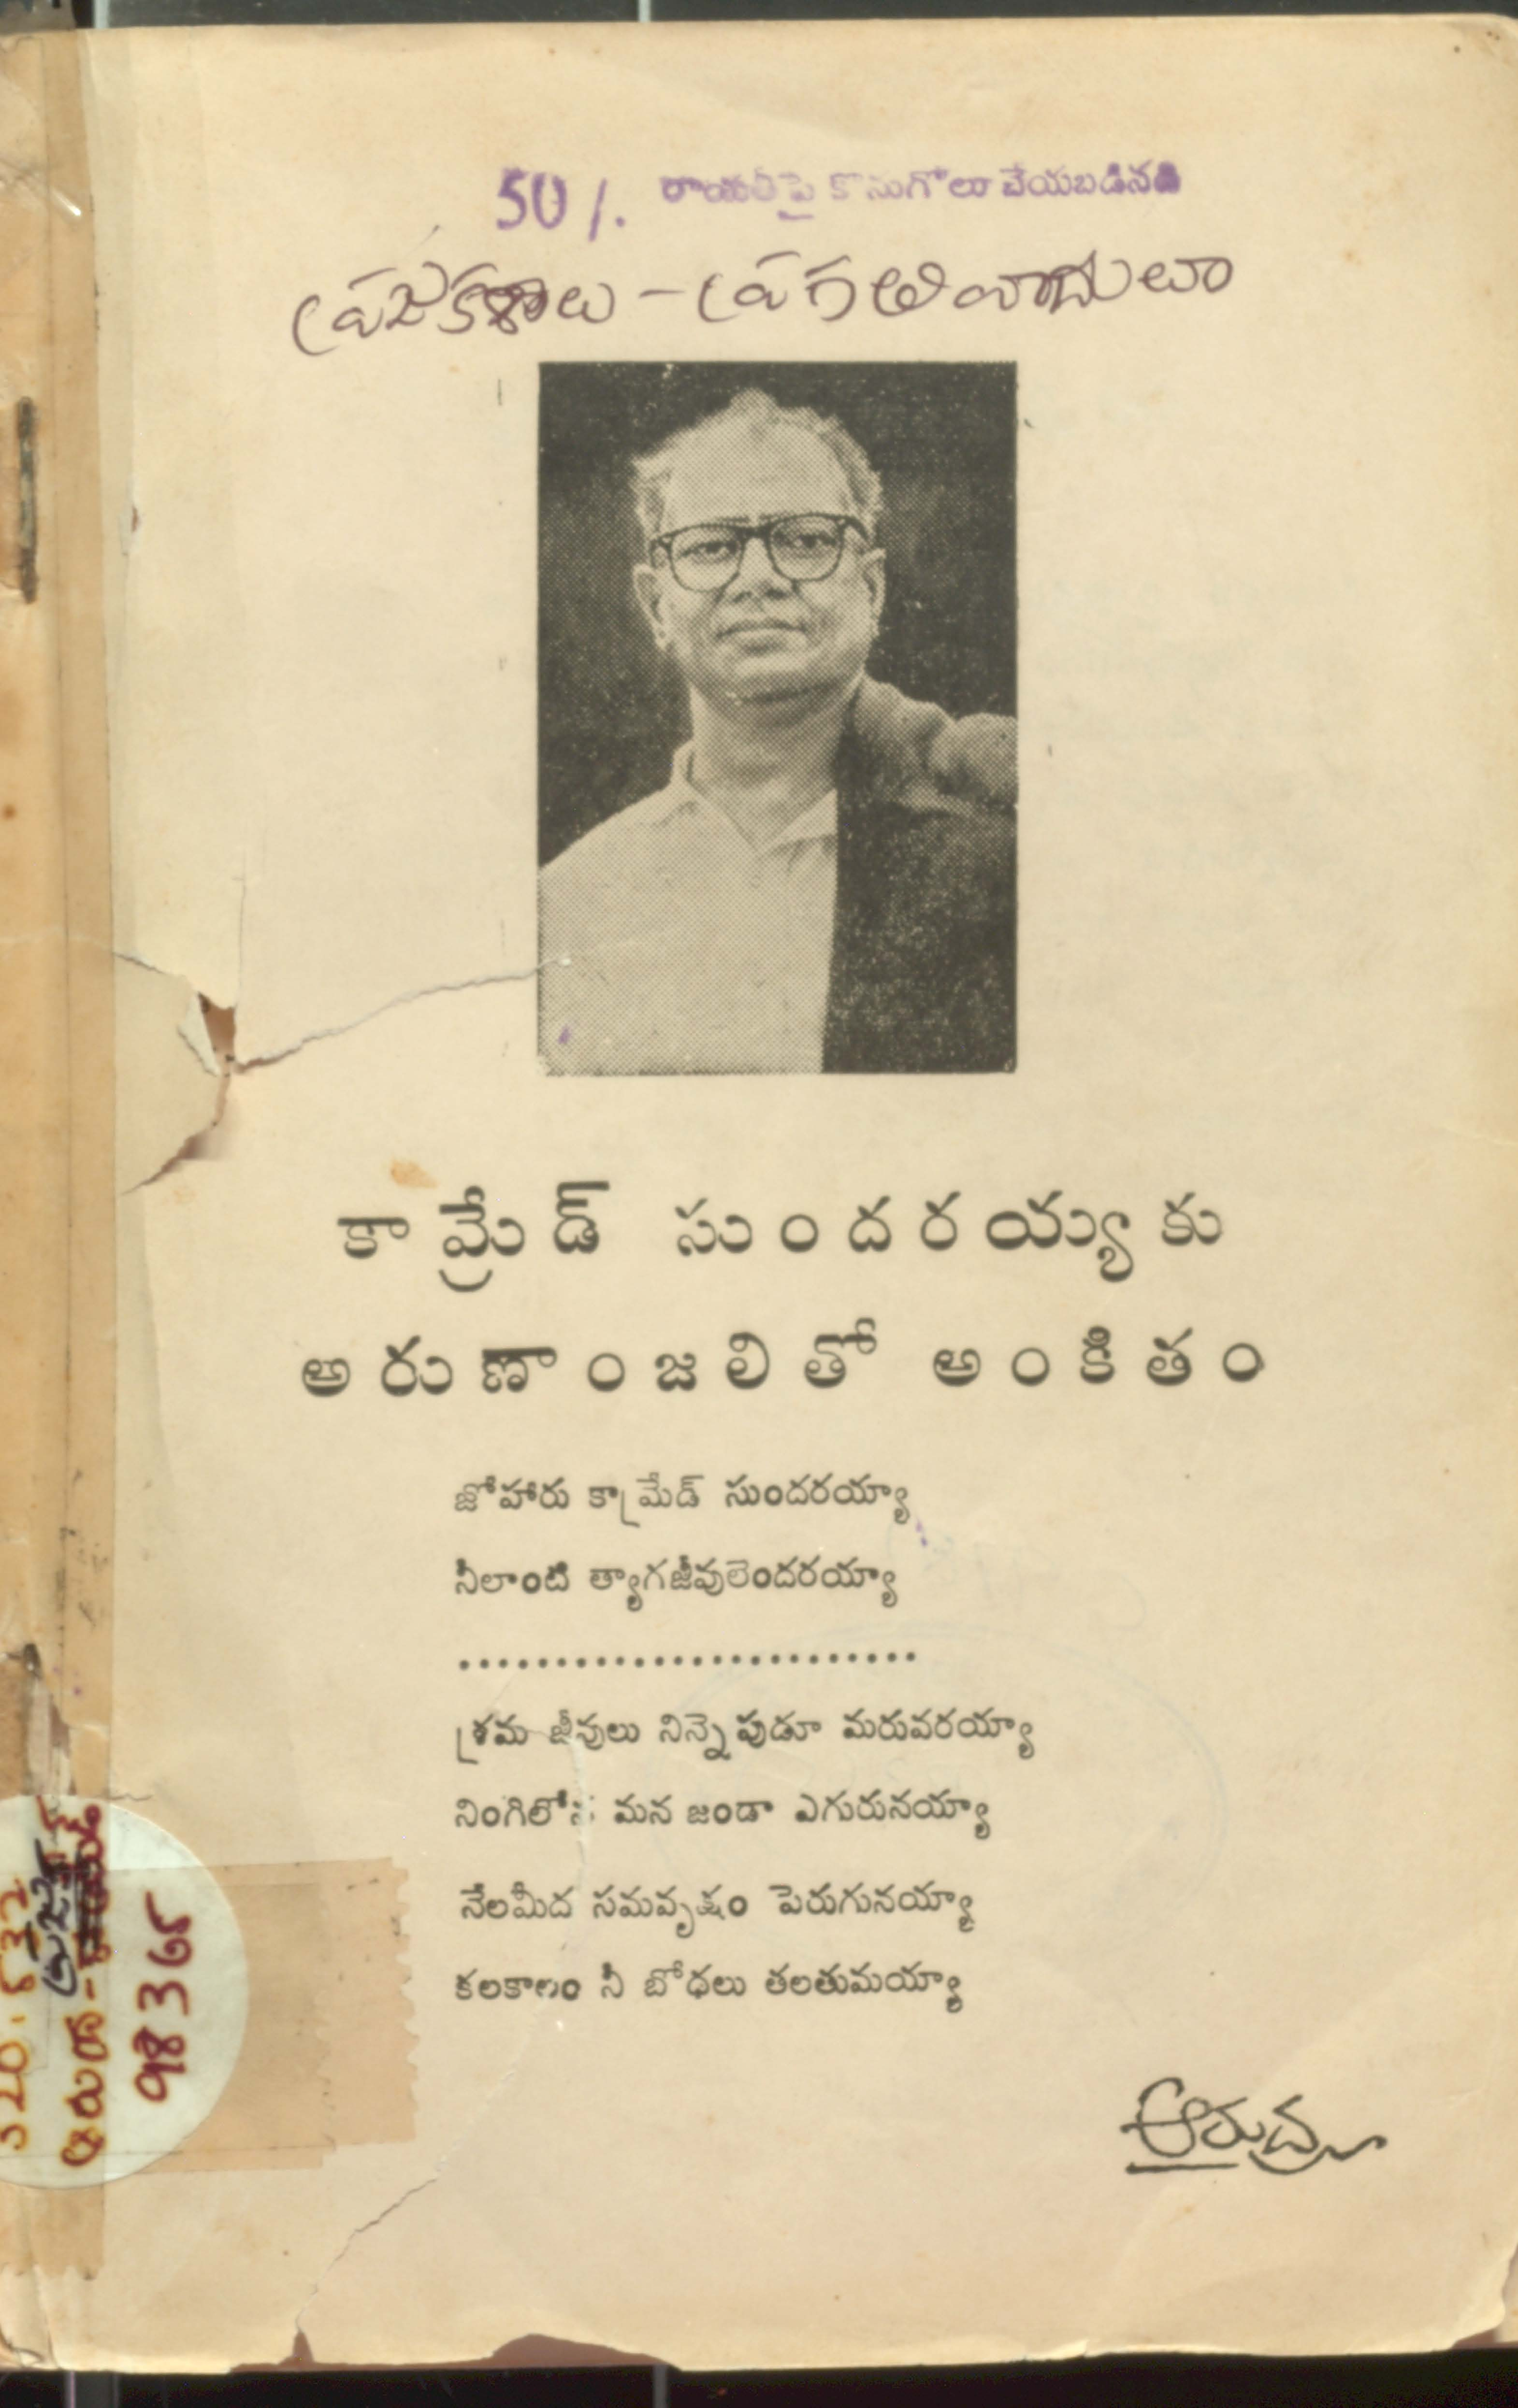 50 /. రాయితీపై కొనుగోలు చేయబడినది
ప్రజాకళలు - ప్రగతివాదులూ
కామ్రేడ్ సుందరయ్యకు
అరుణాంజలితో అంకితం
జోహారు కామ్రేడ్ సుందరయ్యా
నీలాంటి త్యాగజీవులెందరయ్యా
........................
శ్రమ జీవులు నిన్నెపుడూ మరువరయ్యా
నింగిలోన మన జండా ఎగురునయ్యా
నేలమీద సమవృక్షం పెరుగునయ్యా
కలకాలం నీ బోధలు తలతుమయ్యా
ఆరుద్ర
ఆరుద్ర -
98365